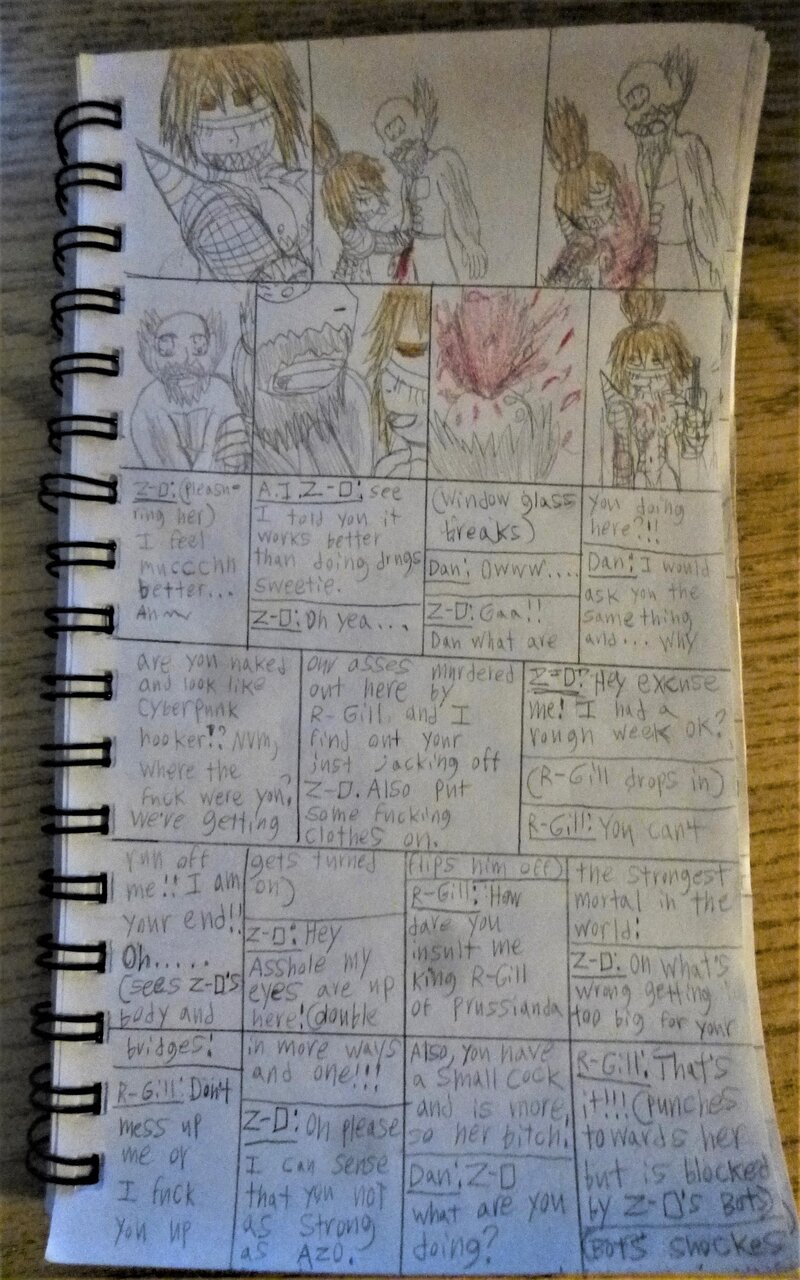 Z-D: (pleash-
ring her)
I feel
mucccchh
better...
Ahm
A.I Z-D: see
I told you it
works better
than doing drugs
sweetie.
Z-D: Oh yea...
(window glass
breaks)
Dan: Owww....
Z-D: Gaa!!
Dan what are
you doing
here?!!
Dan: I would
ask you the
same thing
and... why
are you naked
and look like
cyberpunk
hooker!? NVM,
where the
fuck were you,
we're getting
our asses murdered
out here by
R-Gill, and I
find out your
just jacking off
Z-D. Also put
some fucking
clothes on.
Z-D: Hey excuse
me! I had a
rough week ok?
(R-Gill drops in)
R-Gill: You can't
run off
me!! I am
your end!!
Oh.....
(sees Z-D's
body and
gets turned
on)
Z-D: Hey
Asshole my
eyes are up
here! (double
flips him off)
R-Gill: How
dare you
insult me
King R-Gill
of Prussianda
the strongest
mortal in the
world!
Z-D: Oh what's
wrong getting
too big for your
bridges!
R-Gill: Don't
mess up
me or
I fuck
you up
in more ways
and one!!!
Z-D: Oh please
I can sense
that you not
as strong
as Azo.
Also, you have
a small cock
and is more
so her bitch.
Dan: Z-D
what are you
doing?
R-Gill: That's
it!!! (punches
towards her
but is blocked
by Z-D's Bots)
(Bots shockes